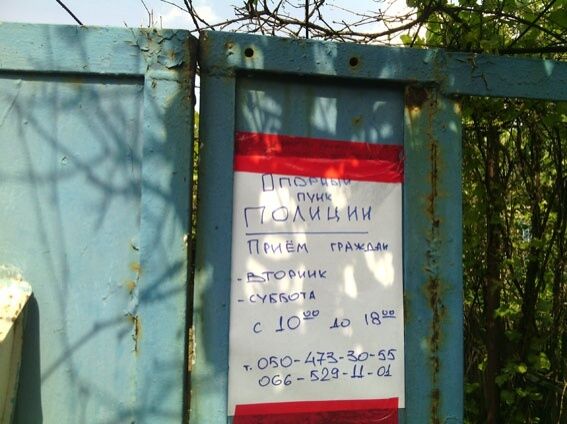 Опорный
пунк
ПОЛИЦИИ
Приём граждан
- Вторник
- Суббота
с 10⁰⁰ до 18⁰⁰
т. 050-473-30-55
066-529-11-01